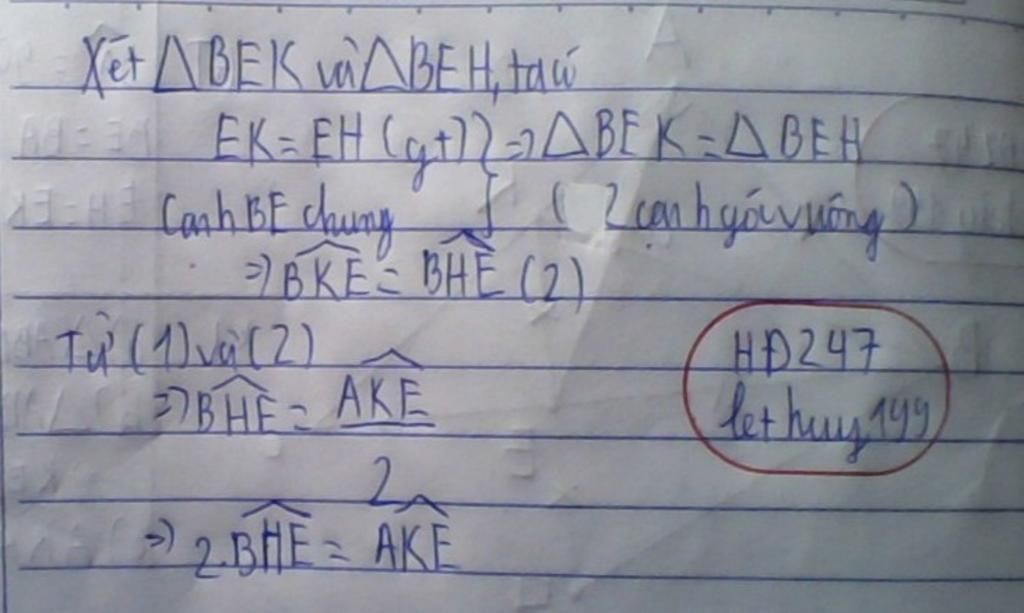 Xét △BEK và △BEH, ta có
EK = EH (gt) } ⇒ △BEK = △BEH
Cạnh BE chung } ( 2 cạnh góc vuông )
⇒ \widehat{BKE} = \widehat{BHE} (2)
Từ (1) và (2)
⇒ \widehat{BHE} = \widehat{AKE}
2
⇒ 2.\widehat{BHE} = \widehat{AKE}
HĐ247
lethuy199